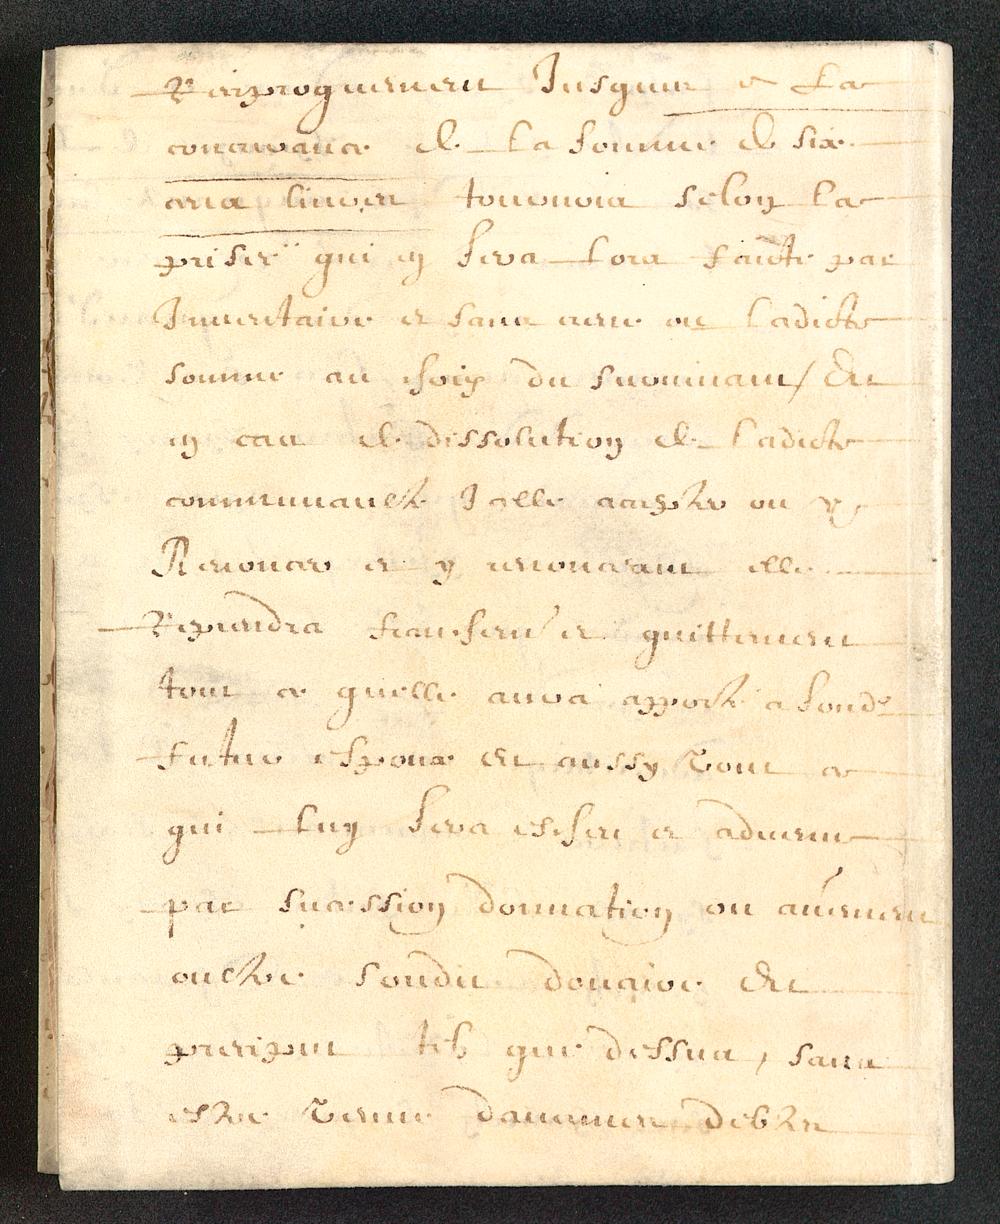 Reciproquement Jusques a La
concurrance de La somme de six
cens livres tournois selon la
prisée qui en sera lors faicte par
Inventaire et sans creue ou ladicte
somme au choix du survivant / Et
en cas de dissolution de ladicte
communaulté Jcelle accepter ou y
Renoncer et y renonceant elle
Reprendra franchem^t et quittement
tout ce quelle aura apporté a sond^t
futur espoux Et aussy tout ce
qui luy sera escheu et advenu
par succession donnation ou autrement
oultre sondit douaire Et
preciput telz que dessus, sans
estre tenue daucunes debtes